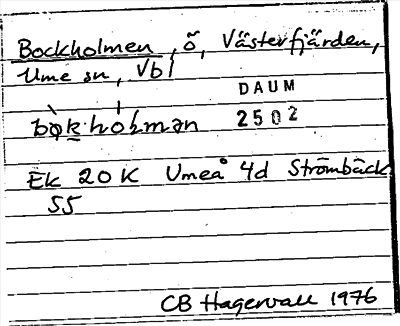 Bockholmen, ö, Västerfjärden,
Ume sn, Vbl
DAUM
bò̜k·hólmən 2502
Ek 20K Umeå 4d Strömbäck
S5
CB Hagervall 1976